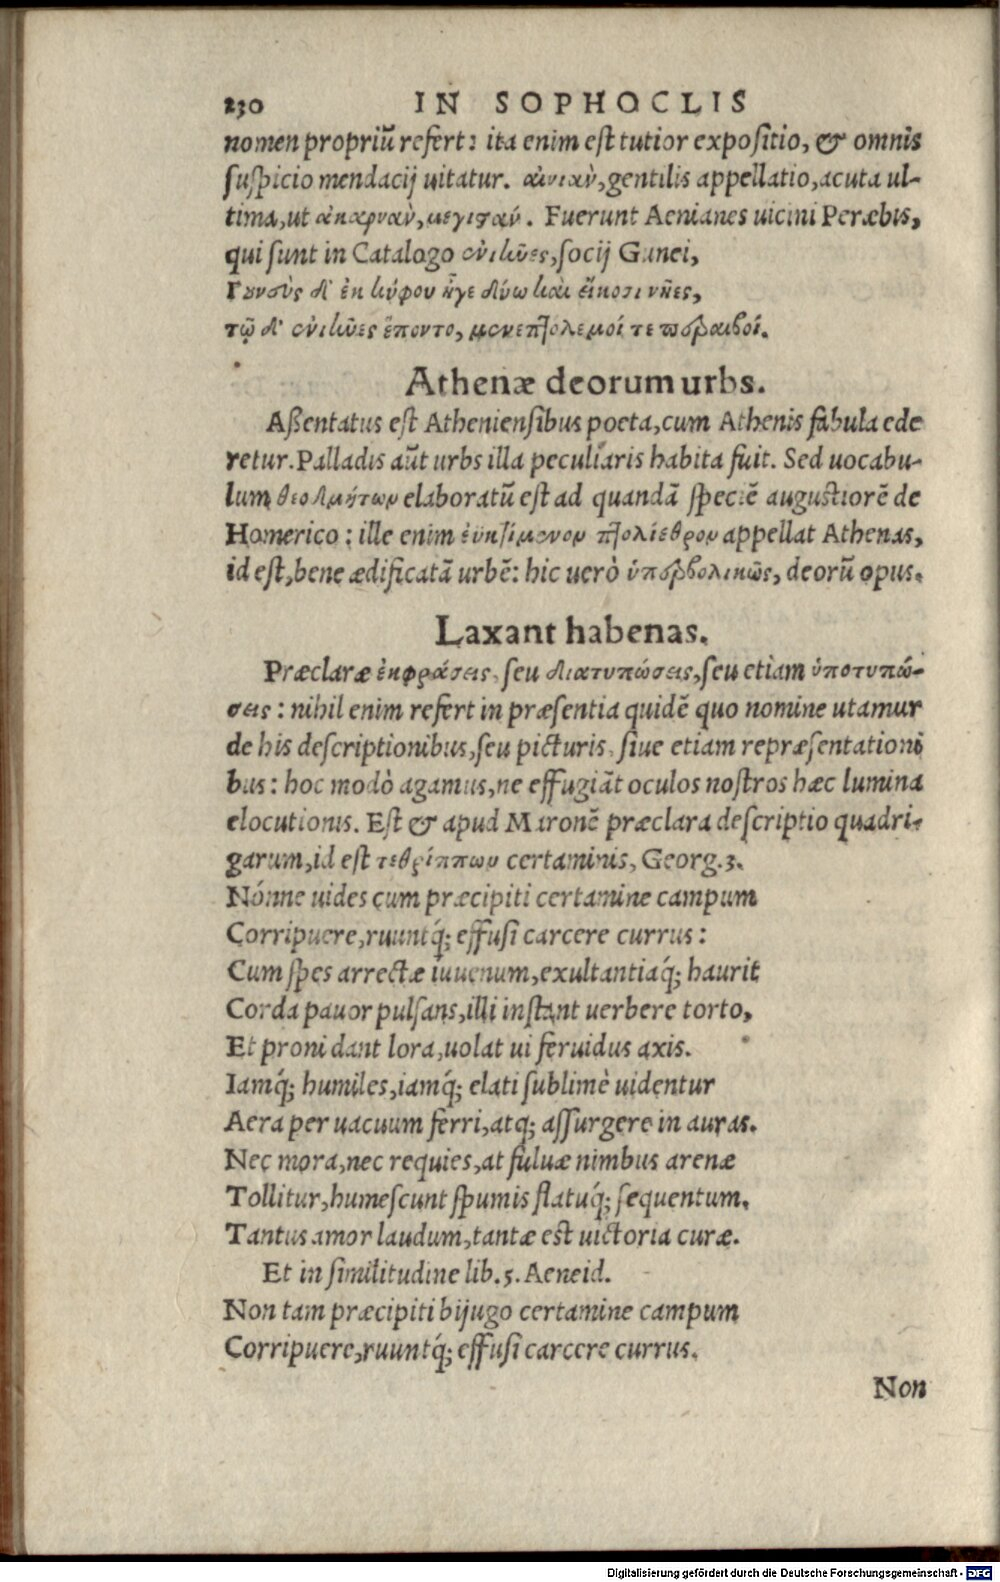 230 IN SOPHOCLIS
nomen propriũ refert: ita enim est tutior expositio, & omnis
suspicio mendacij uitatur. αἰνιὰν, gentilis appellatio, acuta ul-
tima, ut ἀκαρνὰν, μεγιστάν. Fuerunt Aenianes uicini Peræbis,
qui sunt in Catalogo ἐνιῆνες, socij Gunei,
Γουνεὺς δ' ἐκ κύφου ἦγε δύω καὶ εἴκοσι νῆες,
τῷ δ' ἐνιῆνες ἕποντο, μενεπτόλεμοί τε περαιβοί.
Athenæ deorum urbs.
Aßentatus est Atheniensibus poeta, cum Athenis fabula ede
retur. Palladis aũt urbs illa peculiaris habita fuit. Sed uocabu-
lum θεοδμήτων elaboratũ est ad quandã speciẽ augustiorẽ de
Homerico: ille enim ἐϋκτίμενον πτολίεθρον appellat Athenas,
id est, bene ædificatã urbẽ: hic uerò ὑπερβολικῶς, deorũ opus.
Laxant habenas.
Præclaræ ἐκφράσεις, seu διατυπώσεις, seu etiam ὑποτυπώ-
σεις: nihil enim refert in præsentia quidẽ quo nomine utamur
de his descriptionibus, seu picturis, siue etiam repræsentationi
bus: hoc modò agamus, ne effugiãt oculos nostros hæc lumina
elocutionis. Est & apud Maronẽ præclara descriptio quadri-
garum, id est τεθρίππων certaminis, Georg. 3.
Nónne uides cum præcipiti certamine campum
Corripuere, ruuntq́; effusi carcere currus:
Cum spes arrectæ iuuenum, exultantiaq́; haurit
Corda pauor pulsans, illi instant uerbere torto,
Et proni dant lora, uolat ui feruidus axis.
Iamq́; humiles, iamq́; elati sublimè uidentur
Aera per uacuum ferri, atq; assurgere in auras.
Nec mora, nec requies, at fuluæ nimbus arenæ
Tollitur, humescunt spumis flatuq́; sequentum.
Tantus amor laudum, tantæ est uictoria curæ.
Et in similitudine lib. 5. Aeneid.
Non tam præcipiti bijugo certamine campum
Corripuere, ruuntq́; effusi carcere currus.
Non
Digitalisierung gefördert durch die Deutsche Forschungsgemeinschaft - DFG